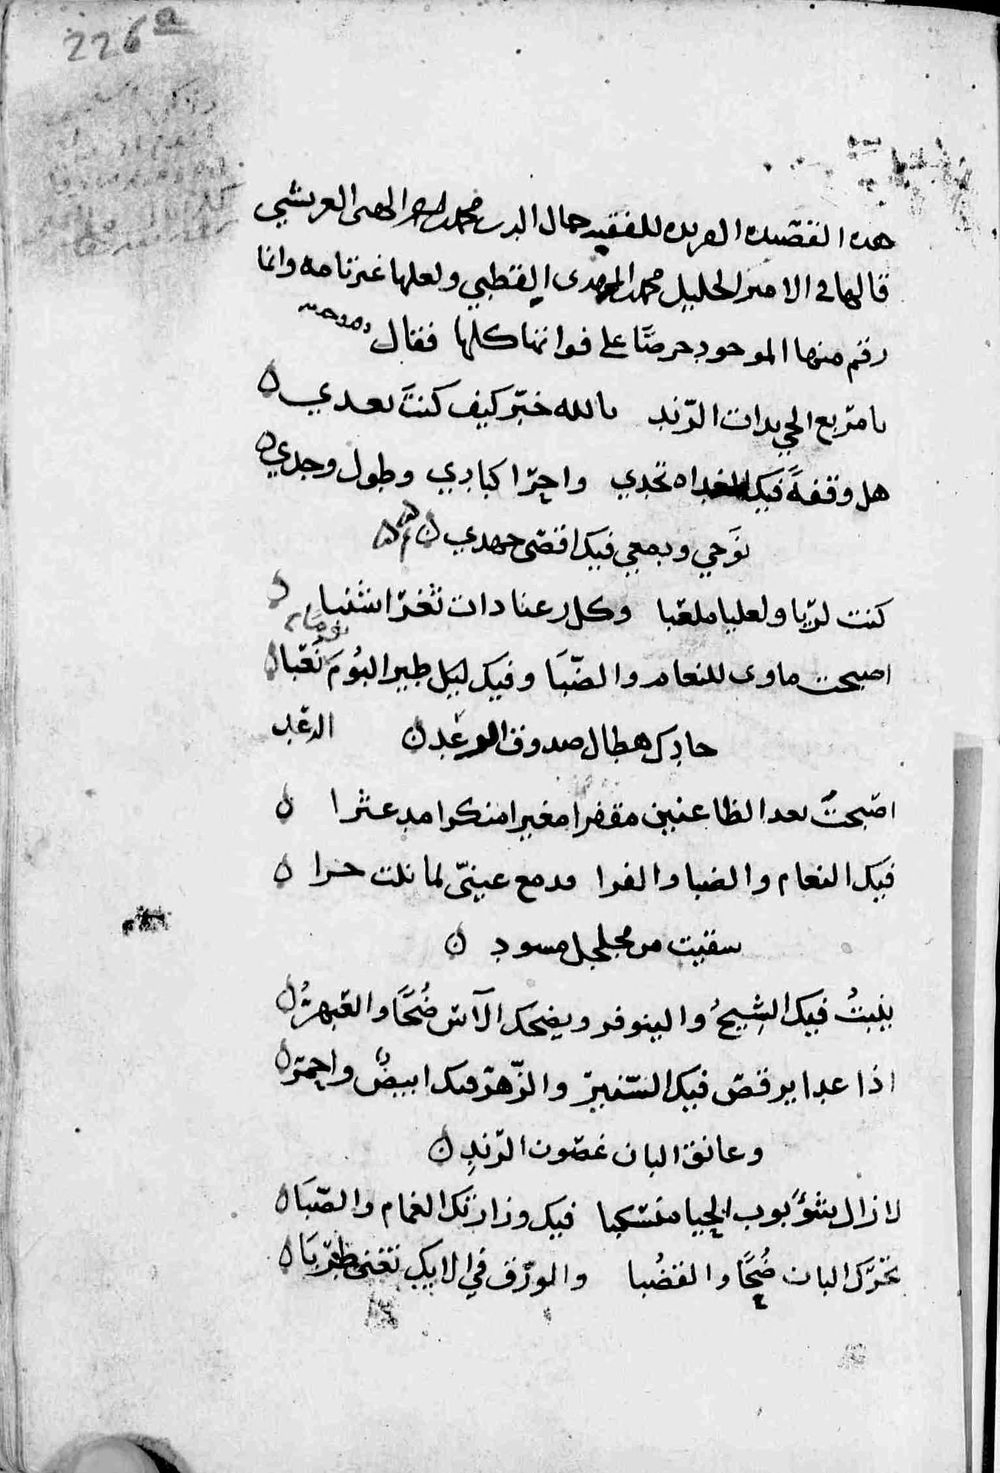 226a
هذه القصيده الفريده للفقيه جمال الدين محمد العريشي
قالها في الامير الجليل محمد المهدي القطبي ولعلها غير تامه وانما
رقم منها الموجود حرصًا على فواتها كلها فقال
يا مربع الحي بذات الرّند بالله خبّر كيف كنتَ بعدي ۵
هل وقفةً فيك تجدي واحرّا كبادي وطول وجدي ۵
نوَحي ودمعي فيك اقصى جهدي ۵
كنت لريّا ولعليا ملعبا وكل رعنا ذات ثغرٍ اشنبا ۵
اصبحت ماوى للنعام والضّبَا وفيك ليل طير البُومَ نَعّبا ۵
جادك هطال صدوق الرعد ۵ الرّعد
اصبحتَ بعد الظاعنين مقفرا مغيرا منكرا مدعثرا ۵
فيك النعام والضبا والفرا ودمع عينيّ لما نلت جرا ۵
سقيت من مجلجل مسود ۵
ينبتُ فيك الشيحُ والينوفر ويضحك الآس ضُحًا والعَبهرُ ۵
اذا غدا يرقص فيك السّنبر والزّهر فيك ابيضٌ واحمر ۵
وعانق البان غصون الرّندِ ۵
لا زال شؤبوب الحيا منسكبا فيك وزارتك الغمام والصّبَا ۵
تحرّك البان ضُحًا والقضُبا والورق في الايك تغنى طرَبَا ۵